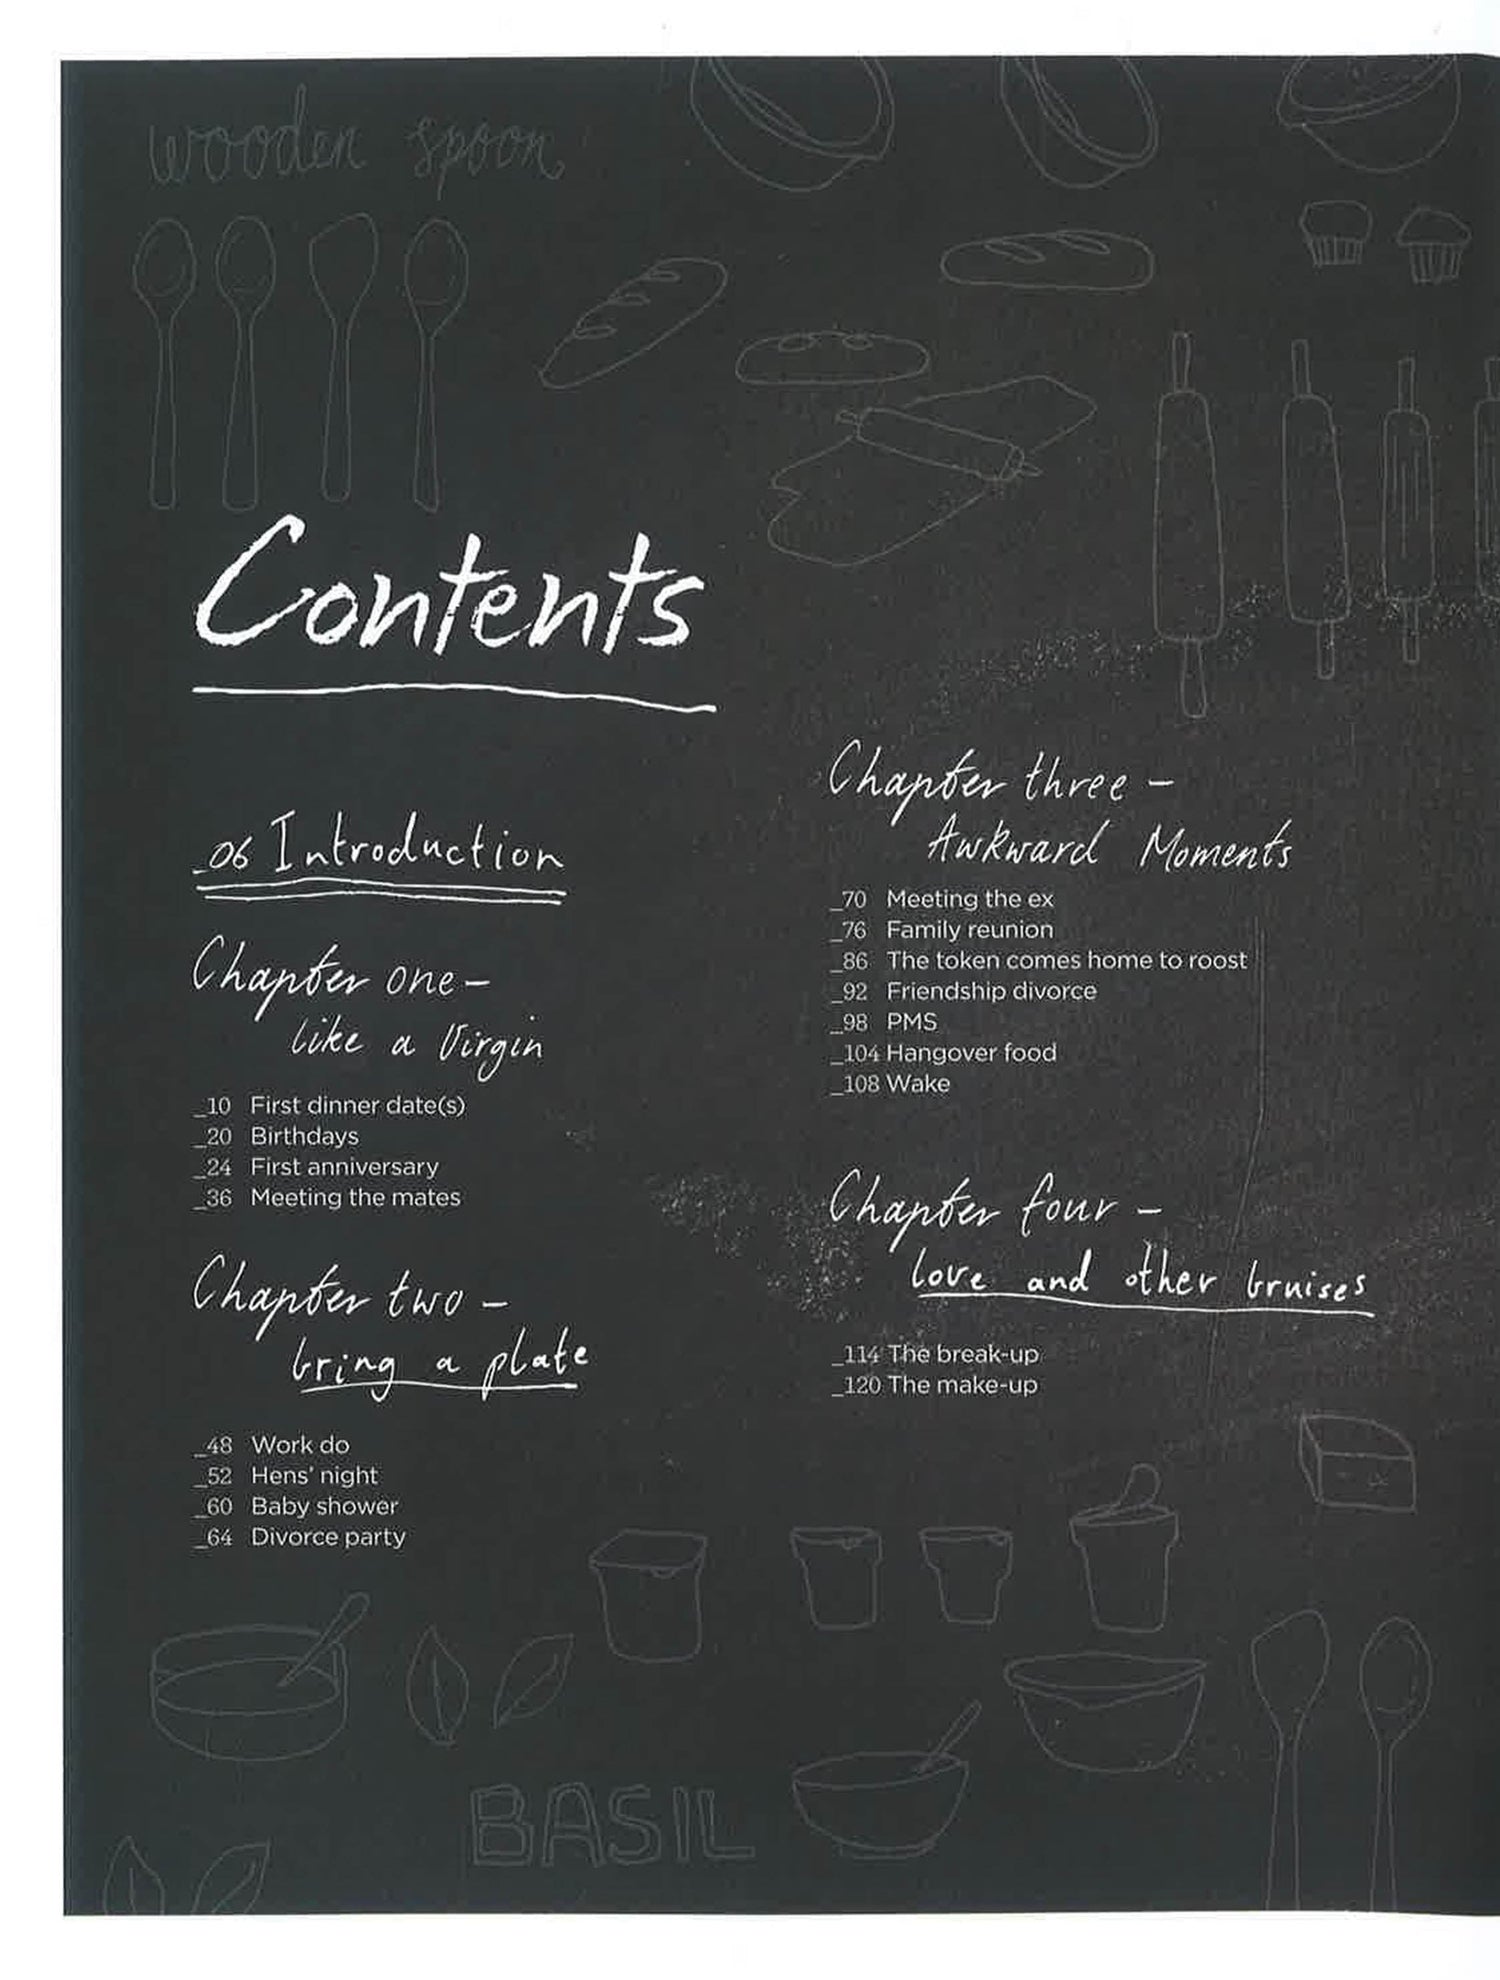 wooden spoon
Contents
_06 Introduction
Chapter one -
like a Virgin
_10 First dinner date(s)
_20 Birthdays
_24 First anniversary
_36 Meeting the mates
Chapter two -
bring a plate
_48 Work do
_52 Hens' night
_60 Baby shower
_64 Divorce party
Chapter three -
Awkward Moments
_70 Meeting the ex
_76 Family reunion
_86 The token comes home to roost
_92 Friendship divorce
_98 PMS
_104 Hangover food
_108 Wake
Chapter four -
love and other bruises
_114 The break-up
_120 The make-up
BASIL